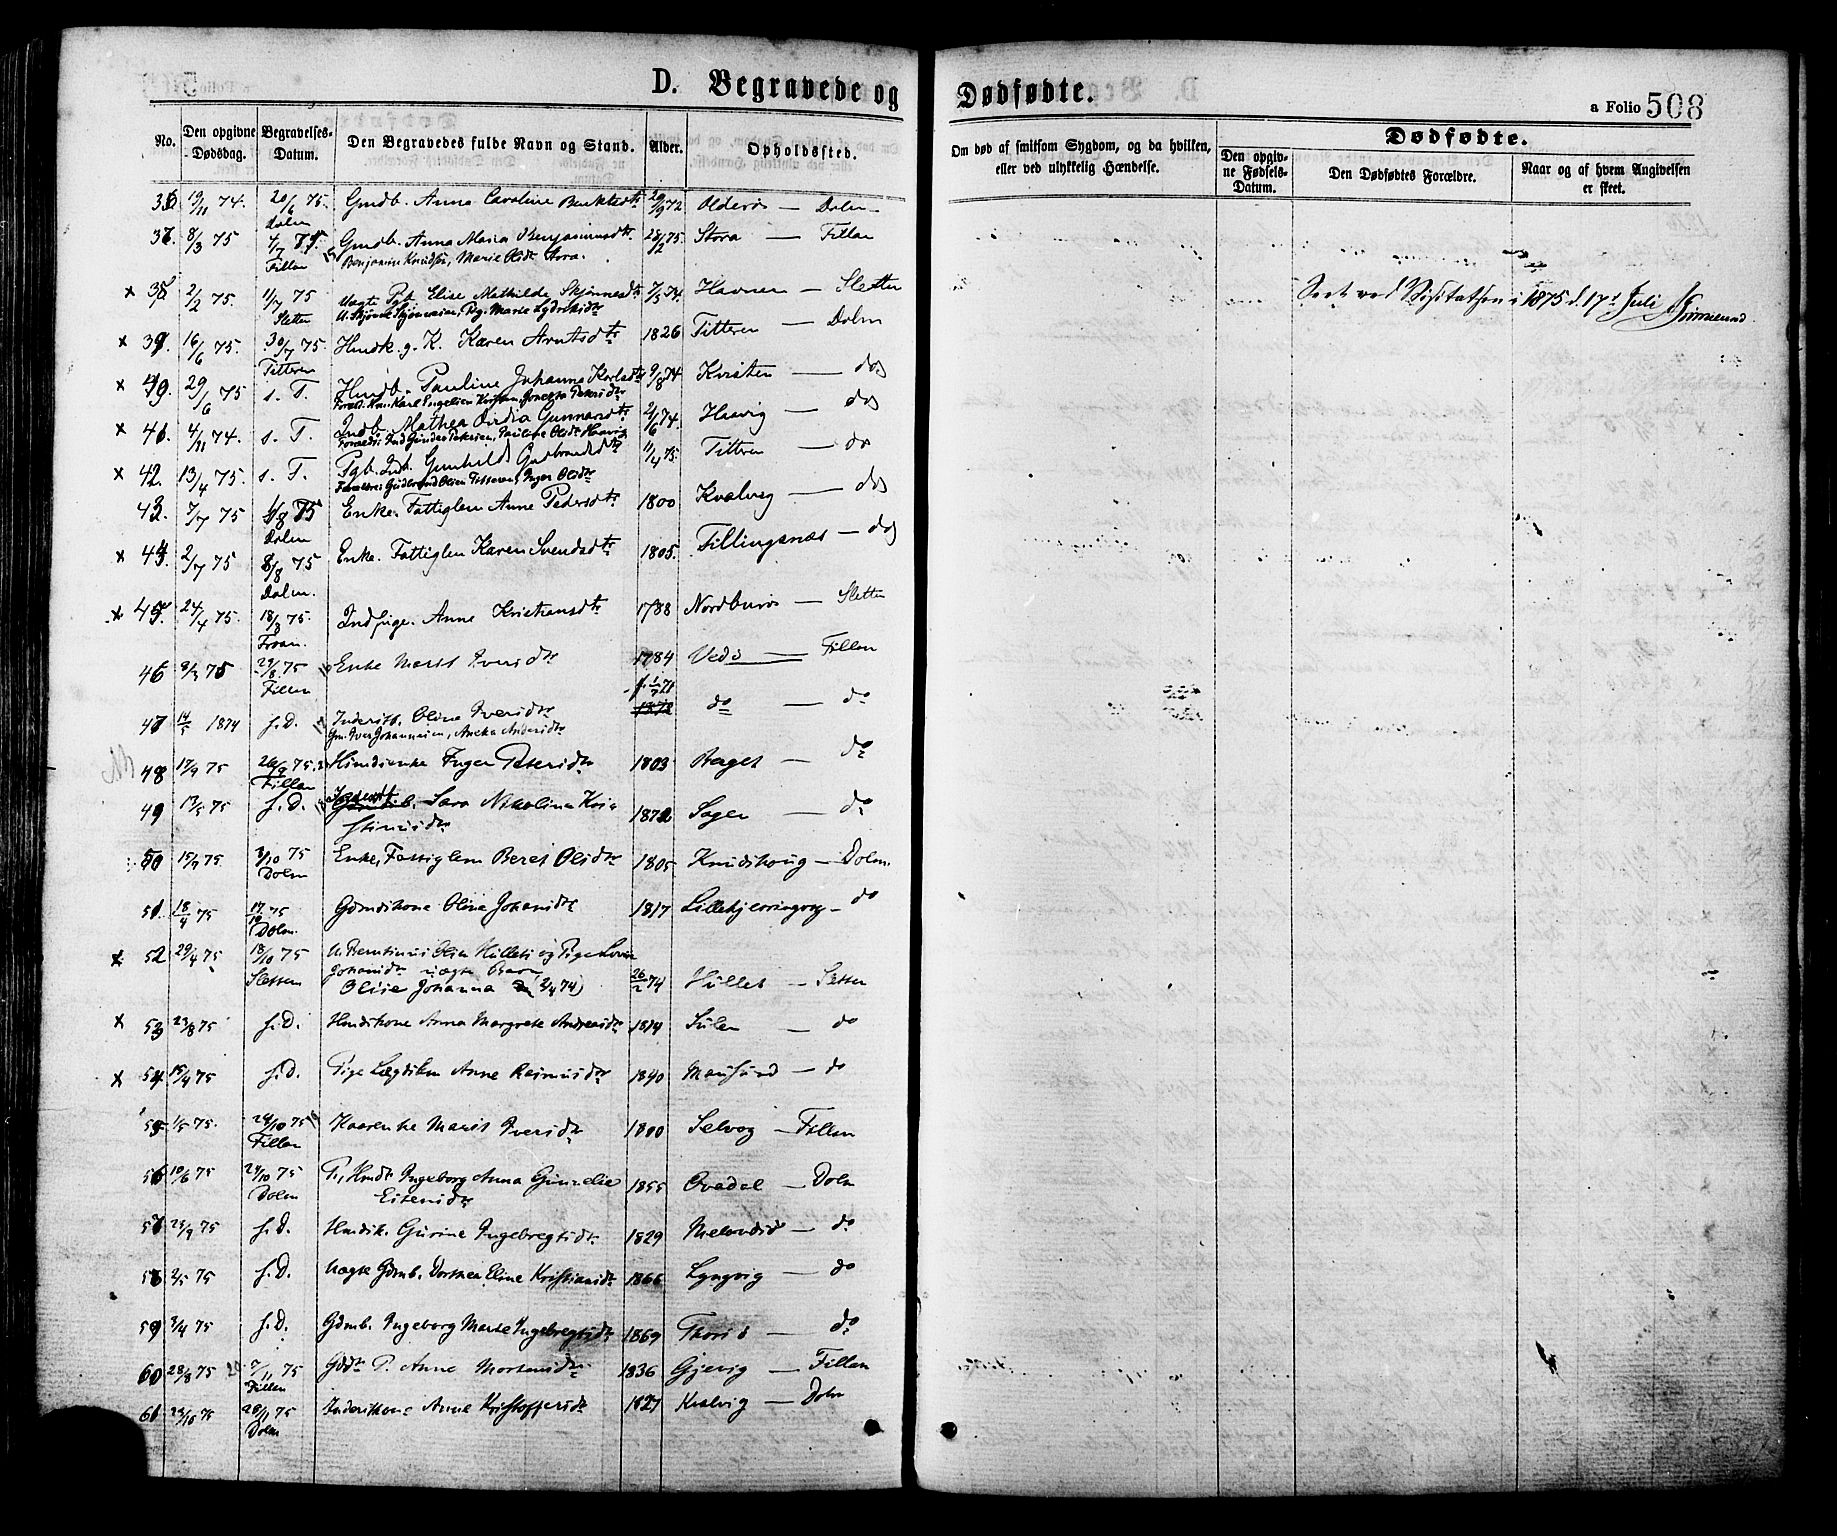 D. Begravede og Dødfødte.
a Folio 508
No.
Den opgivne Dødsdag.
Begravelses-Datum.
Den Begravedes fulde Navn og Stand.
Alder.
Opholdssted.
Om død af smitsom Sygdom, og da hvilken, eller ved ulykkelig Hændelse.
Dødfødte.
Den opgivne Fødsels-Datum.
Den Dødfødtes Forældre.
Naar og af hvem Angivelsen er skeet.
36 19/11 74. 20/6 75. Dolm Gmdb. Anna Caroline 20/9 72 Olderøs — Dolm
37. 8/3 75 4/7 75. Fillan Gmdb. Anna Maria Benjaminsdtr 28/2 75. Stora — Fillan
Benjamin Knudsen, Marie Olsdtr
x 38 2/2 75. 11/7 75 Sletten Uægte Pgb. Elise Mathilde Skjønnesdtr 7/3 74. Havnen — Sletten
Seet ved Visitatsen i 1875 d. 17de Juli
x 39. 16/6 75. 30/7 75. Titteren Hmdk. g. K. Karen Arntsdtr 1826 Titteren — Dolm
x 40. 29/6 75 s. T. Hmdb. Pauline Johanna Karlsdtr 9/8 74 Kvisten — do
x 41. 4/11 74. s. T. Indb. Mathea Gunnarsdtr 2/6 74. Haavig — do
x 42. 13/4 75. s. T. Pgb. Indb. Gunhild Gudbrandsdtr 11/4 75. Titteren — do
43. 7/7 75 1/8 75 Dolm Enke. Fattiglem Anne Pedersdtr 1800 Kvalvig — do
x 44. 2/7 75 8/8 75 Dolm. Enke. Fattiglem Karen Svendsdtr 1805. Fillingsnæs — do
x 45. 24/4 75. 18/8 75. Froan. Indpige. Anne Kristiansdtr 1788 Nordburøs — Sletten
46 75 29/8. 75 Fillan Enke Marit Iversdtr 1784 Vedø — Fillan
47 14/5 1874 s. D. Inderstb. Oline Iversdtr f. 1/7 71 do — do
Gm. Iver Johannesen, Aneka Andersdtr
48 17/9 75 26/9 75. Fillan Hmdsenke Inger Petersdtr 1803 Berget — do
49 13/5 75 s. D. Inderstb. Sara Nikolina Kristinusdtr 1872 Sagen — do
50 15/9 75. 3/10 75 Dolm Enke, Fattiglem Beret Olsdtr 1805 Knudshoug — Dolm.
51. 18/4 75 17/10 75 Dolm. Gdmdskone Olina Johansdtr 1817 — do
x 52 29/4 75 18/10 75 Sletten U. Berntinus Olsen Hullets og Pige
Johansdtr uægte Barn
Olise Johanna 26/2 74 Hullet — Sletten
x 53 23/8 75 s. D. Hmdskone Anna Margrete Andreasdtr 1814 Sulen — do
x 54 15/4 75 s. D. Pige Lægdslem Anne Rasmusdtr 1840 Mausund — do
55 1/5 75. 24/10 75 Fillan Kaarenke Marit Iversdtr 1800 Selvog — Fillan
56 10/6 75 24/10 75 Dolm P., Hmdr Ingeborg Anna Gunnelie
Eitensdtr 1855 Ovedal — Dolm
57 23/9 75 s. D. Hmdsk. Gurine Ingebregtsdtr 1829 Melandsø — do
58 2/5 75 s. D. Uægte Gdmb. Dorthea Eline Kristiansdtr 1866 Lyngvig — do
59 3/4 75 s. D. Gdmb. Ingeborg Marie Ingebregtsdtr 1869 Thorsø — do
60 28/8 75 7/11 75 Fillan Gdsr P. Anne Mortensdtr 1836 Gjevig — Fillan
61 23/10 75 28/11 75 Dolm Inderstkone Anne Kristoffersdtr 1827 Kvalvig — Dolm